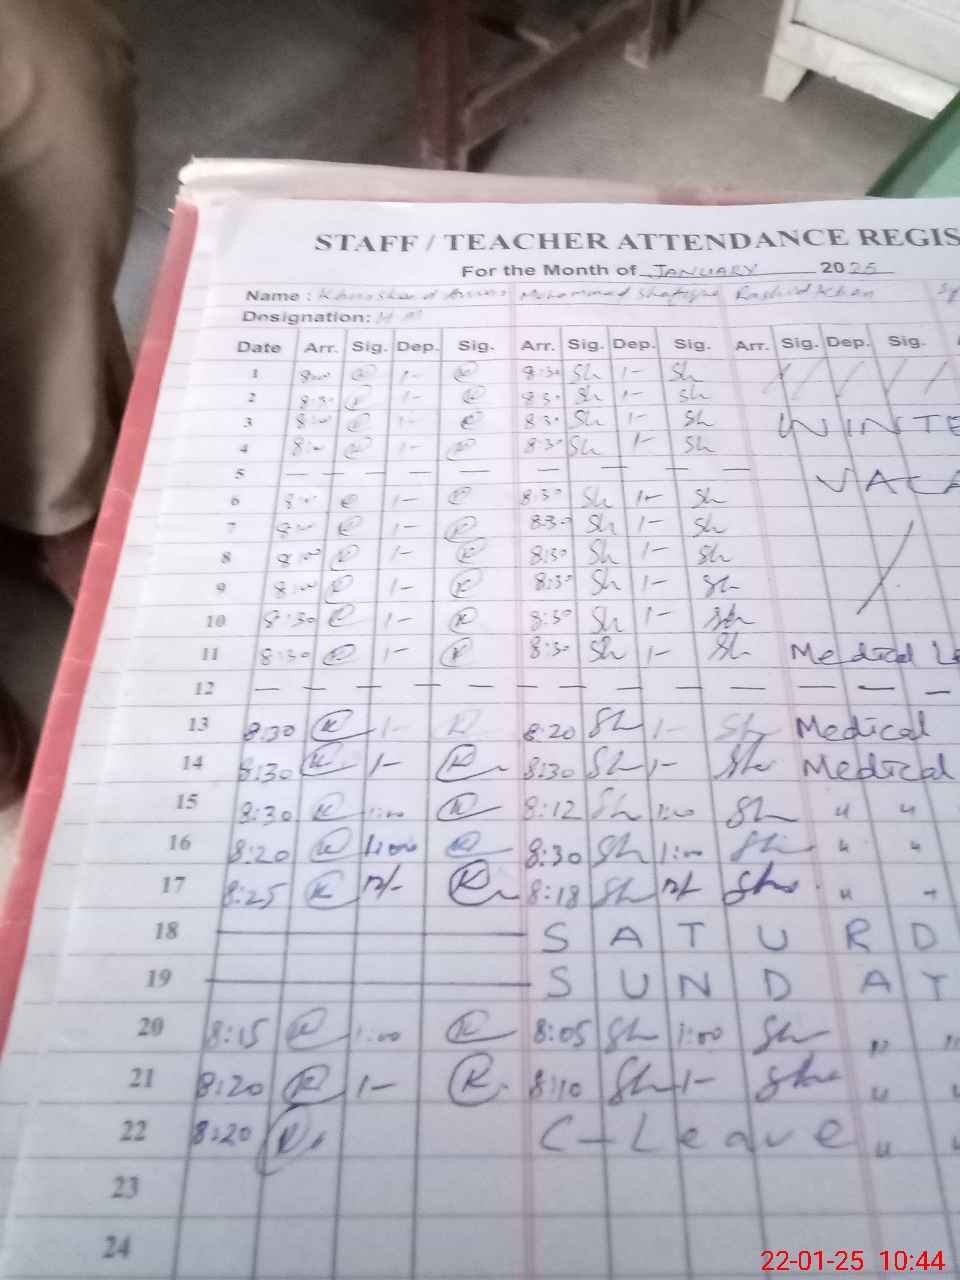 STAFF / TEACHER ATTENDANCE REGIS
For the Month of JANUARY 2025
Name : Muhammad Shafique Rashid Khan
Designation: HM
Date Arr. Sig. Dep. Sig. Arr. Sig. Dep. Sig. Arr. Sig. Dep. Sig.
1 8:00 1- 8:30 Sh 1- Sh
2 8:30 1- 8:30 Sh 1- Sh
3 8:00 1- 8:30 Sh 1- Sh WINTE
4 8:00 1- 8:30 Sh 1- Sh
5 — — — — — — — — VACA
6 8:00 1- 8:30 Sh 1- Sh
7 8:00 1- 8:30 Sh 1- Sh
8 8:00 1- 8:30 Sh 1- Sh
9 8:00 1- 8:30 Sh 1- Sh
10 8:30 1- 8:30 Sh 1- Sh
11 8:30 1- 8:30 Sh 1- Sh Medical Le
12 — — — — — — — — — — —
13 8:30 K 1- K 8:20 Sh 1- Sh Medical
14 8:30 K 1- K 8:30 Sh 1- Sh Medical
15 8:30 K 1:00 K 8:12 Sh 1:00 Sh " "
16 8:20 K 1:00 K 8:30 Sh 1:00 Sh " "
17 8:25 K 12/- K 8:18 Sh 12/- Sh " "
18 SATURD
19 SUNDAY
20 8:15 K 1:00 K 8:05 Sh 1:00 Sh " "
21 8:20 K 1- K 8:10 Sh 1- Sh " "
22 8:20 K C-Leave " "
23
24
22-01-25 10:44